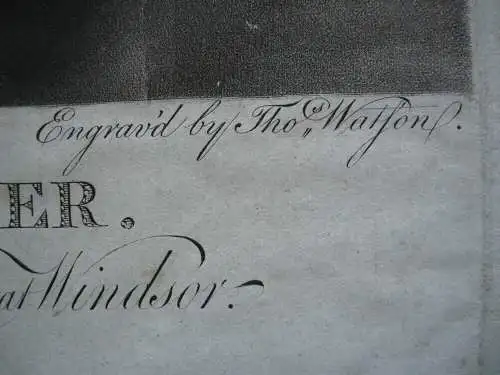 Engrav'd by Tho.s Watſon.
ER.
at Windsor.